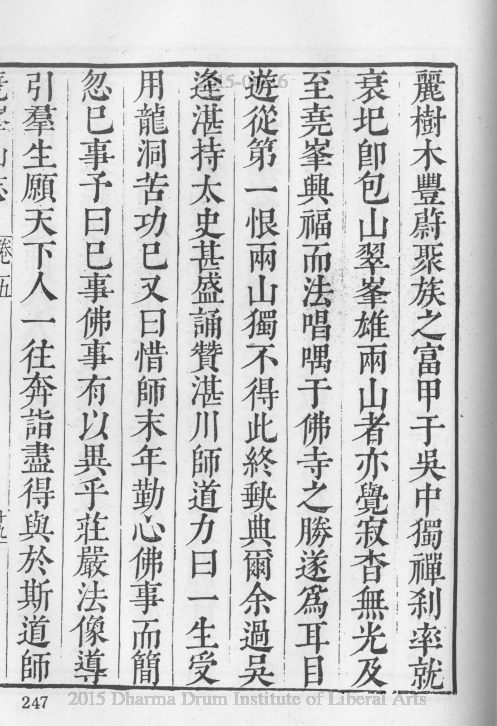 麗樹木豐蔚聚族之富甲于吳中獨禪刹率就
衰圯卽包山翠峯雄兩山者亦覺寂杳無光及
至堯峯興福而法唱喁于佛寺之勝遂爲耳目
遊從第一恨兩山獨不得此終軼典爾余過吳
逢湛持太史甚盛誦贊湛川師道力曰一生受
用龍洞苦功巳又曰惜師末年勤心佛事而簡
忽巳事予曰巳事佛事有以異乎莊嚴法像導
引羣生願天下人一往奔詣盡得與於斯道師
卷五
247
2015 Dharma Drum Institute of Liberal Arts